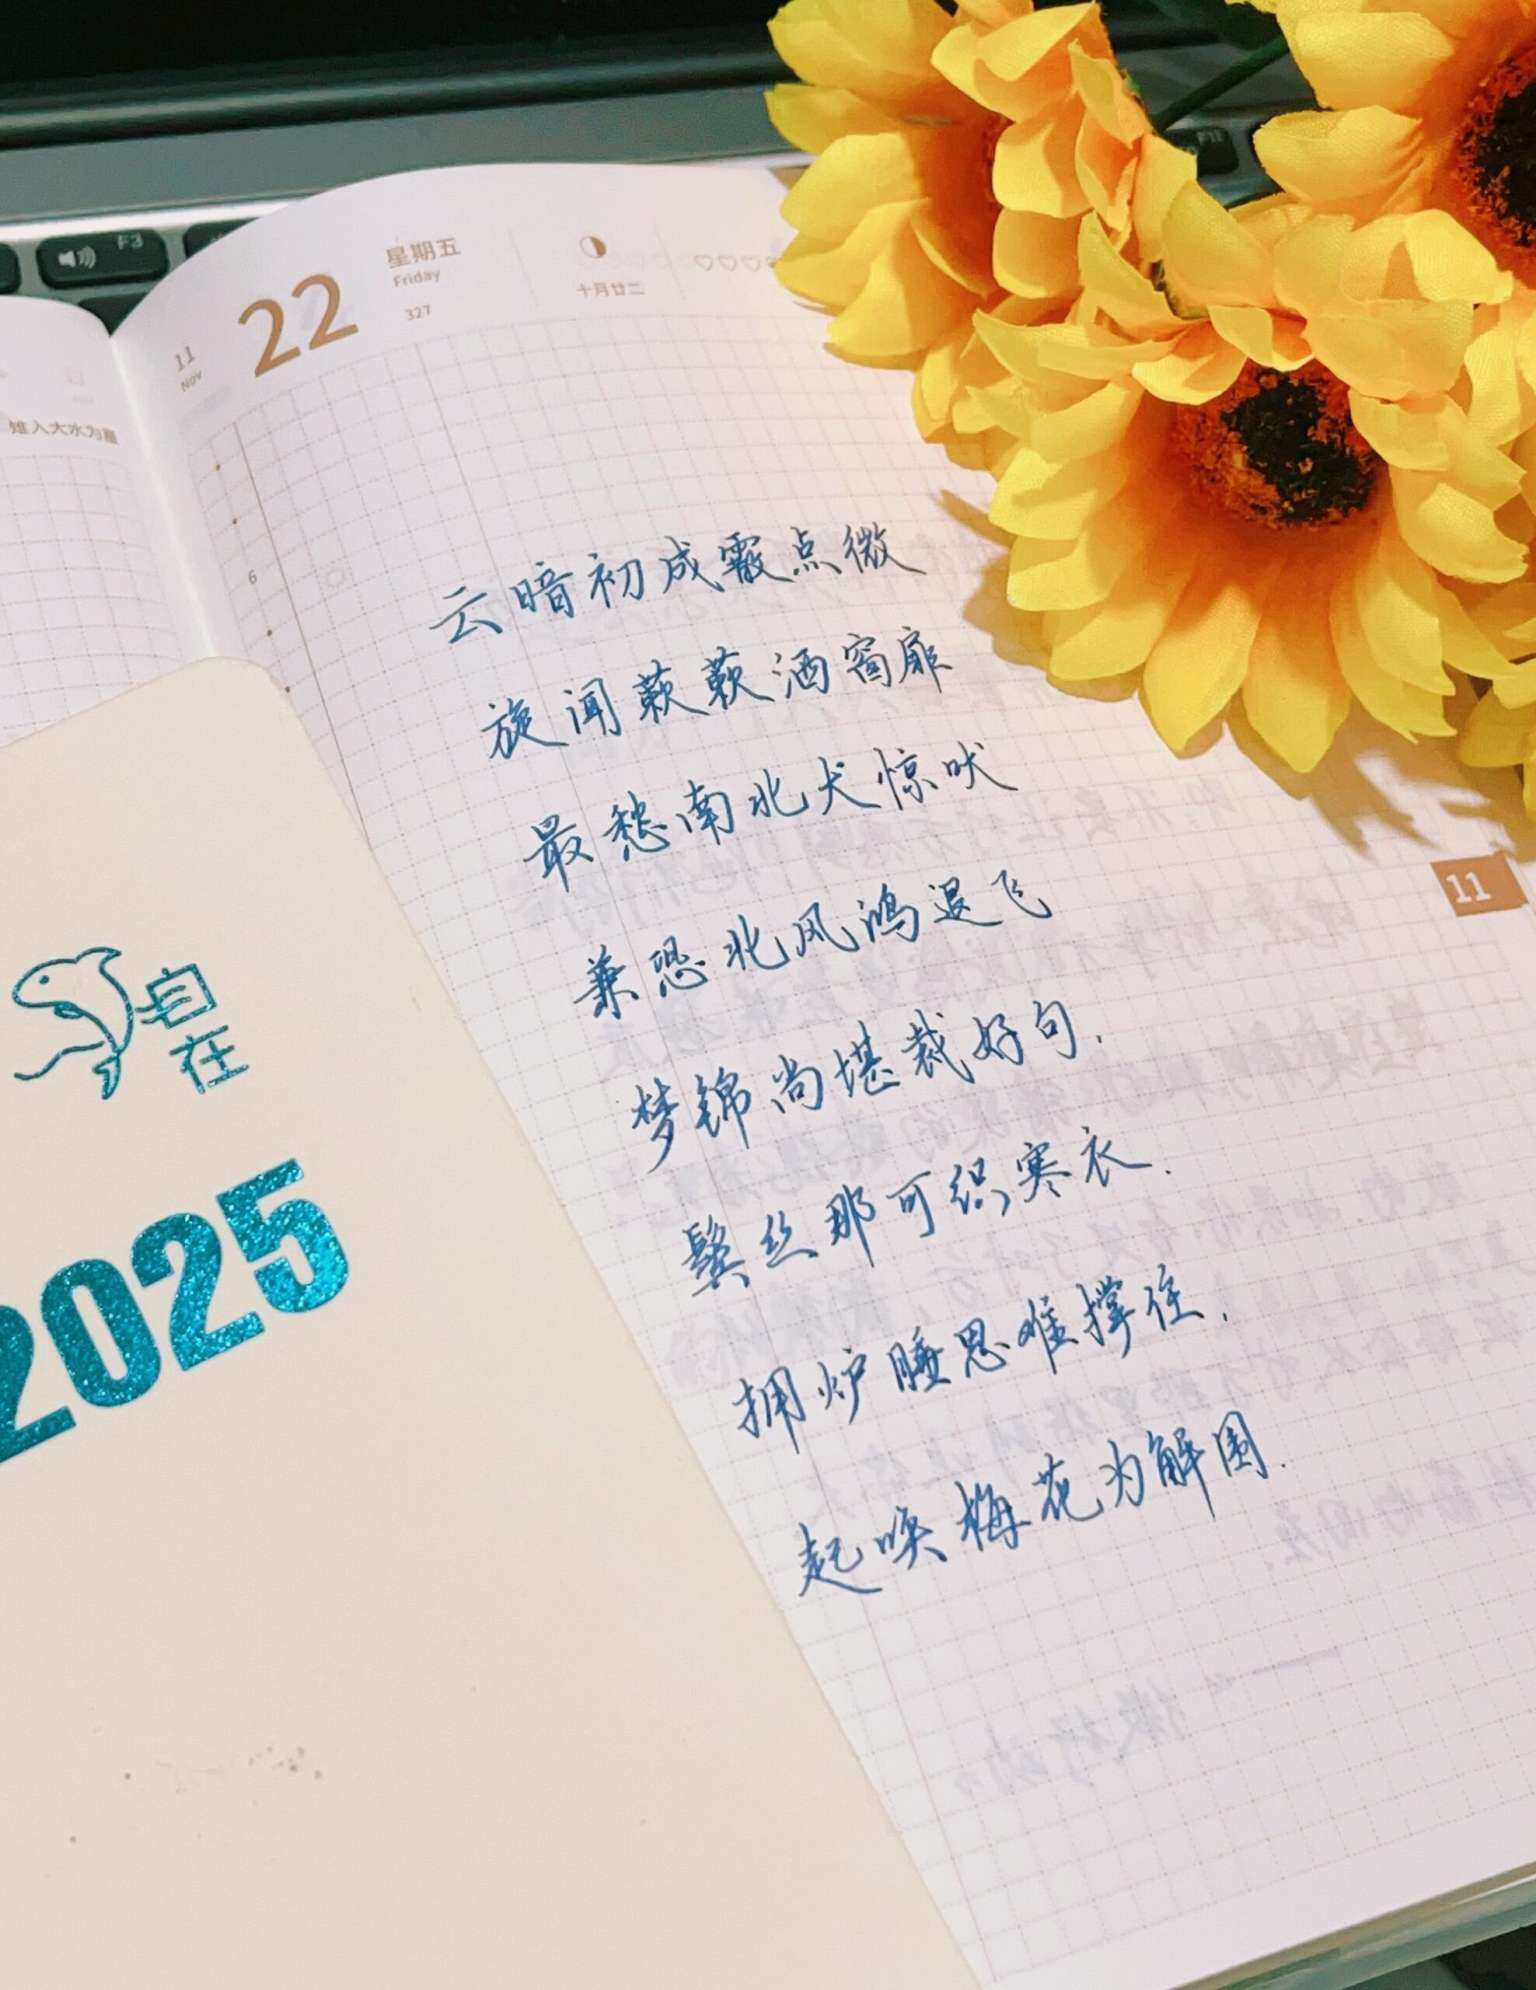 F3
F11
11
Nov
22
星期五
Friday
327
十月廿二
雉入大水为蜃
6
云暗初成霰点微
旋闻蔌蔌洒窗扉
最愁南北犬惊吠
兼恐北风鸿退飞
梦锦尚堪裁好句.
鬓丝那可织寒衣.
拥炉睡思难撑住.
起唤梅花为解围.
11
自在
2025